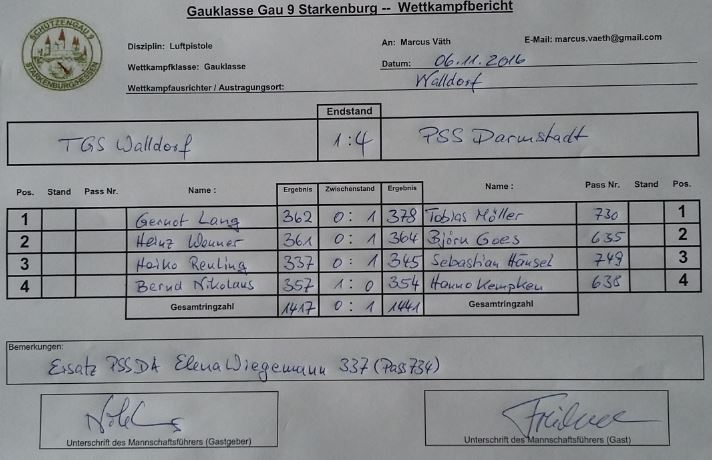 Gauklasse Gau 9 Starkenburg -- Wettkampfbericht
SCHÜTZENGAU 9
STARKENBURG/HESSEN
Disziplin: Luftpistole An: Marcus Väth E-Mail: marcus.vaeth@gmail.com
Wettkampfklasse: Gauklasse Datum: 06.11.2016
Wettkampfausrichter / Austragungsort: Walldorf
Endstand
TGS Walldorf 1:4 PSS Darmstadt
Pos. Stand Pass Nr. Name : Ergebnis Zwischenstand Ergebnis Name : Pass Nr. Stand Pos.
1 Gernot Lang 362 0:1 378 Tobias Möller 730 1
2 Heinz Wenner 361 0:1 364 Björn Goes 635 2
3 Heiko Reuling 337 0:1 345 Sebastian Hänsel 749 3
4 Bernd Nikolaus 357 1:0 354 Hanno Kempken 638 4
Gesamtringzahl 1417 0:1 1441 Gesamtringzahl
Bemerkungen:
Ersatz PSSDA Elena Wiegemann 337 (Pass 734)
Unterschrift des Mannschaftsführers (Gastgeber) Unterschrift des Mannschaftsführers (Gast)